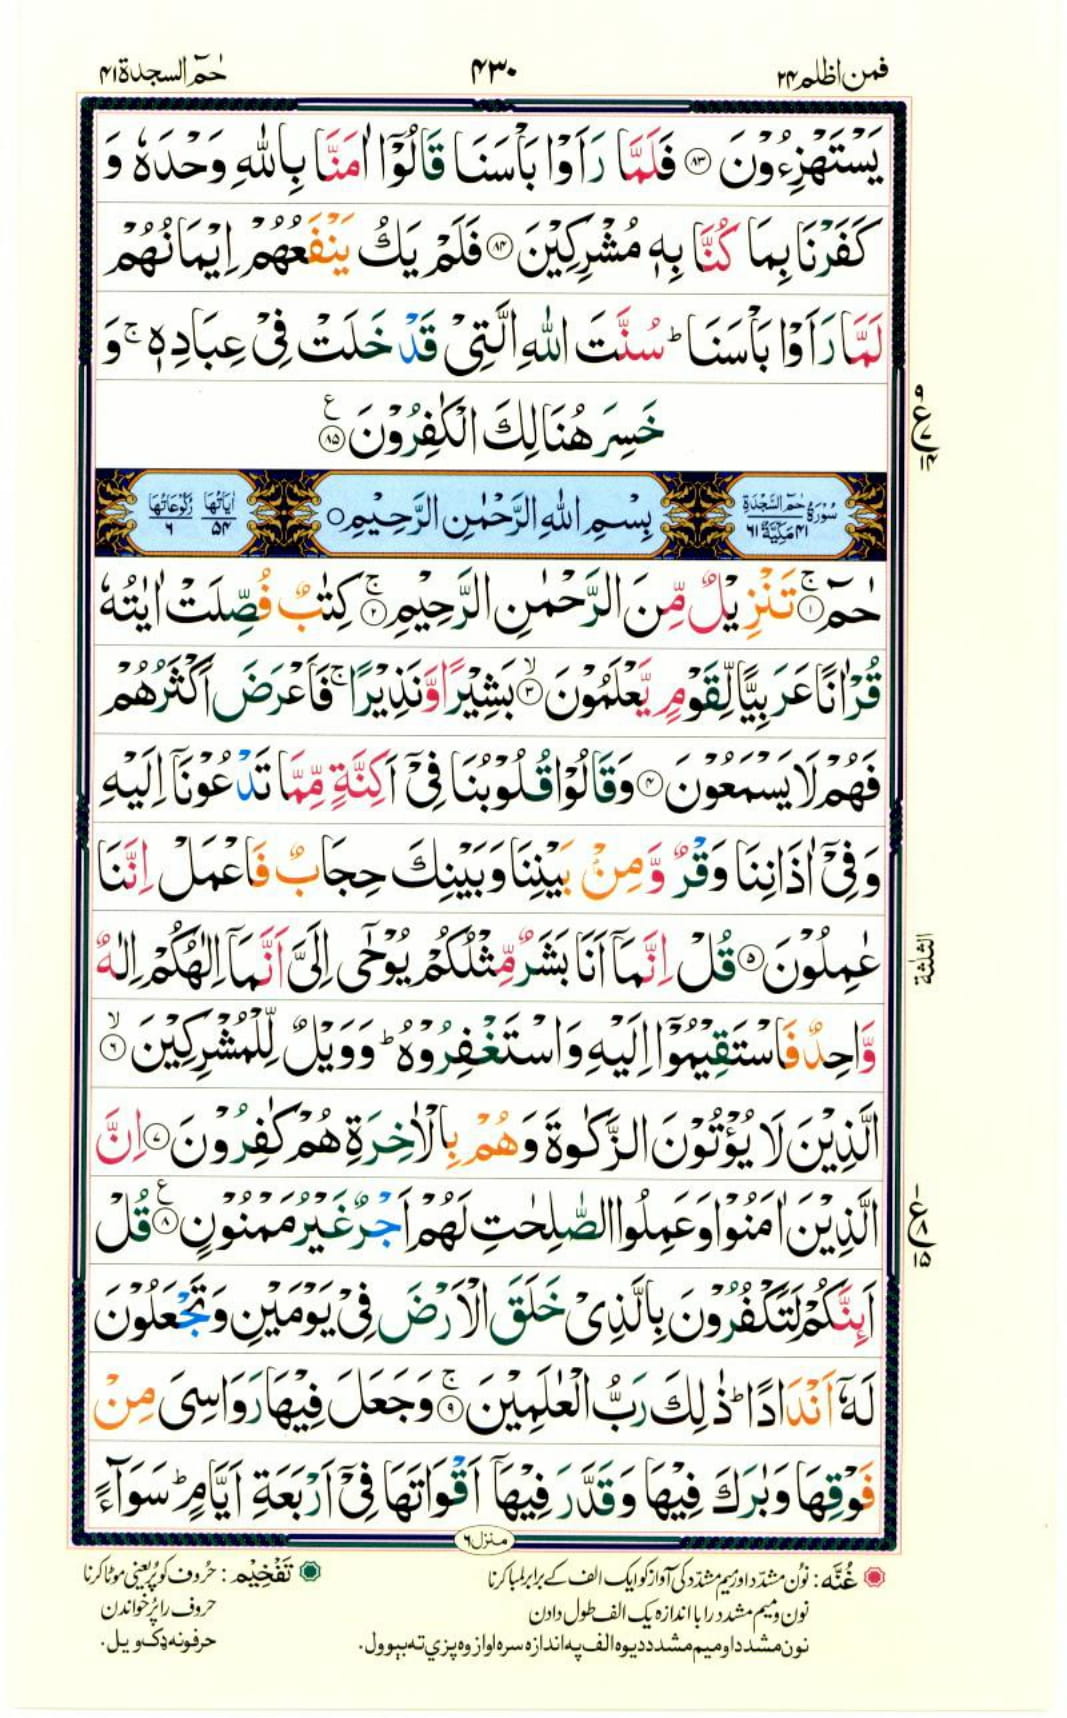 فمن اظلم ۲۴
۴۳۰
حٰمٓ السجدة ۴۱
يَسْتَهْزِءُوْنَ ۝۸۳ فَلَمَّا رَاَوْا بَاْسَنَا قَالُوْٓا اٰمَنَّا بِاللّٰهِ وَحْدَهٗ وَ
كَفَرْنَا بِمَا كُنَّا بِهٖ مُشْرِكِيْنَ ۝۸۴ فَلَمْ يَكُ يَنْفَعُهُمْ اِيْمَانُهُمْ
لَمَّا رَاَوْا بَاْسَنَا ؕ سُنَّتَ اللّٰهِ الَّتِيْ قَدْ خَلَتْ فِيْ عِبَادِهٖ ۚ وَ
خَسِرَ هُنَالِكَ الْكٰفِرُوْنَ ۝۸۵ ع
ع ۹ ۷ ۱۴
سُوْرَةُ حٰمٓ السَّجْدَةِ ۴۱ مَكِّيَّةٌ ۶۱
بِسْمِ اللّٰهِ الرَّحْمٰنِ الرَّحِيْمِ ○
اٰيَاتُهَا ۵۴ رُكُوْعَاتُهَا ۶
حٰمٓ ۝۱ۚ تَنْزِيْلٌ مِّنَ الرَّحْمٰنِ الرَّحِيْمِ ۝۲ۚ كِتٰبٌ فُصِّلَتْ اٰيٰتُهٗ
قُرْاٰنًا عَرَبِيًّا لِّقَوْمٍ يَّعْلَمُوْنَ ۝۳ۙ بَشِيْرًا وَّنَذِيْرًا ۚ فَاَعْرَضَ اَكْثَرُهُمْ
فَهُمْ لَا يَسْمَعُوْنَ ۝۴ وَقَالُوْا قُلُوْبُنَا فِيْٓ اَكِنَّةٍ مِّمَّا تَدْعُوْنَآ اِلَيْهِ
وَفِيْٓ اٰذَانِنَا وَقْرٌ وَّمِنْۢ بَيْنِنَا وَبَيْنِكَ حِجَابٌ فَاعْمَلْ اِنَّنَا
عٰمِلُوْنَ ۝۵ قُلْ اِنَّمَآ اَنَا بَشَرٌ مِّثْلُكُمْ يُوْحٰٓى اِلَيَّ اَنَّمَآ اِلٰهُكُمْ اِلٰهٌ
الثلٰثة
وَّاحِدٌ فَاسْتَقِيْمُوْٓا اِلَيْهِ وَاسْتَغْفِرُوْهُ ؕ وَوَيْلٌ لِّلْمُشْرِكِيْنَ ۝۶ۙ
الَّذِيْنَ لَا يُؤْتُوْنَ الزَّكٰوةَ وَهُمْ بِالْاٰخِرَةِ هُمْ كٰفِرُوْنَ ۝۷ اِنَّ
الَّذِيْنَ اٰمَنُوْا وَعَمِلُوا الصّٰلِحٰتِ لَهُمْ اَجْرٌ غَيْرُ مَمْنُوْنٍ ۝۸ ع قُلْ
ع ۱ ۸ ۱۵
اَئِنَّكُمْ لَتَكْفُرُوْنَ بِالَّذِيْ خَلَقَ الْاَرْضَ فِيْ يَوْمَيْنِ وَتَجْعَلُوْنَ
لَهٗٓ اَنْدَادًا ؕ ذٰلِكَ رَبُّ الْعٰلَمِيْنَ ۝۹ۚ وَجَعَلَ فِيْهَا رَوَاسِيَ مِنْ
فَوْقِهَا وَبٰرَكَ فِيْهَا وَقَدَّرَ فِيْهَآ اَقْوَاتَهَا فِيْٓ اَرْبَعَةِ اَيَّامٍ ؕ سَوَآءً
منزل ۶
غُنَّه : نون مشدّد اور میم مشدّد کی آواز کو ایک الف کے برابر لمبا کرنا
نون و میم مشدد را با اندازه یک الف طول دادن
نون مشدد او میم مشدد دیوه الف په اندازه سره اواز وه پزي ته بېوول.
تَفْخِيْم : حُروف کو پُر یعنی موٹا کرنا
حروف را پُر خواندن
حرفونه ډک ویل.